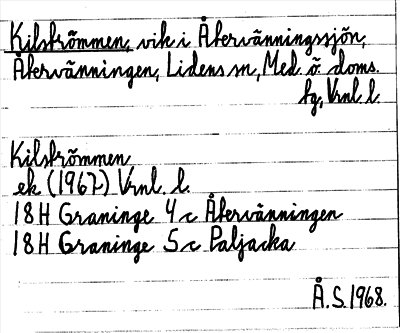 Kilströmmen, vik i Återvänningssjön,
Återvänningen, Lidens sn, Med. ö. doms.
fg, Vrnl. l.
Kilströmmen
ek (1967) Vrnl. l.
18H Graninge 4 c Återvänningen
18H Graninge 5 c Paljacka
Å.S. 1968.